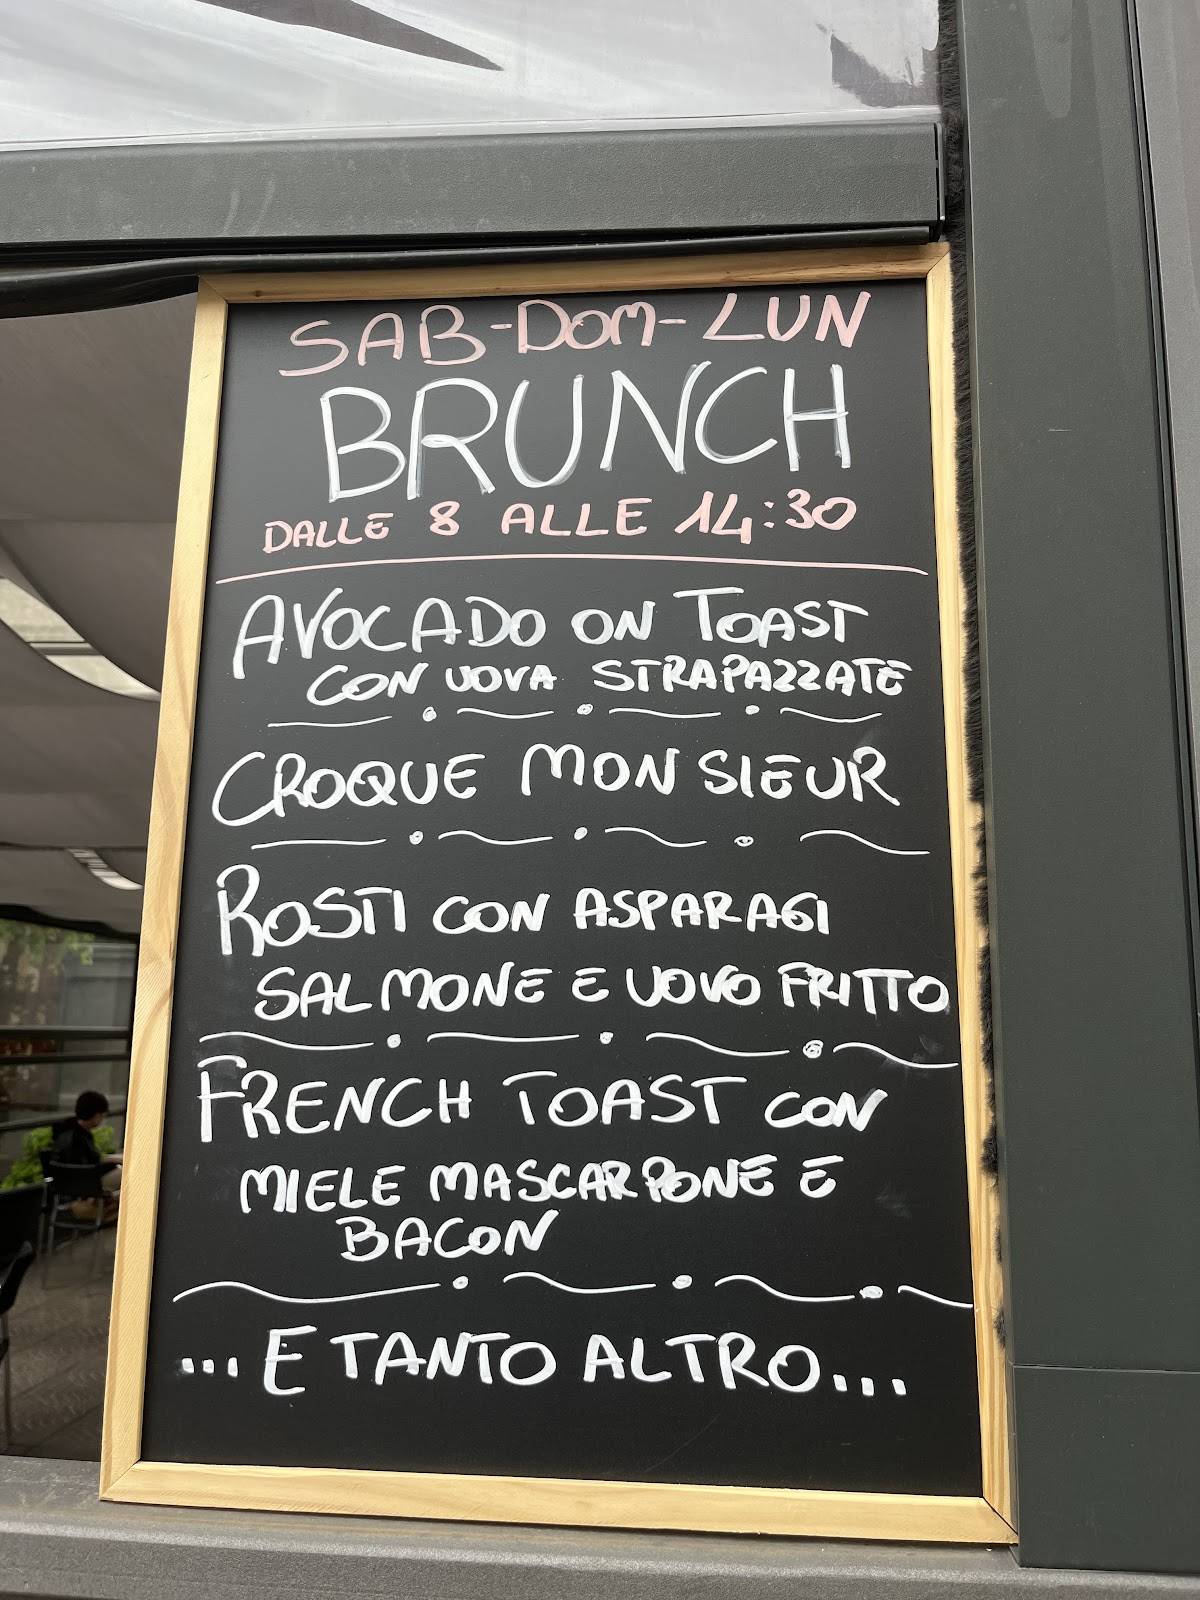 SAB-DOM-LUN
BRUNCH
DALLE 8 ALLE 14:30
AVOCADO ON TOAST
CON UOVA STRAPAZZATE
CROQUE MONSIEUR
ROSTI CON ASPARAGI
SALMONE E UOVO FRITTO
FRENCH TOAST CON
MIELE MASCARPONE E
BACON
...E TANTO ALTRO...